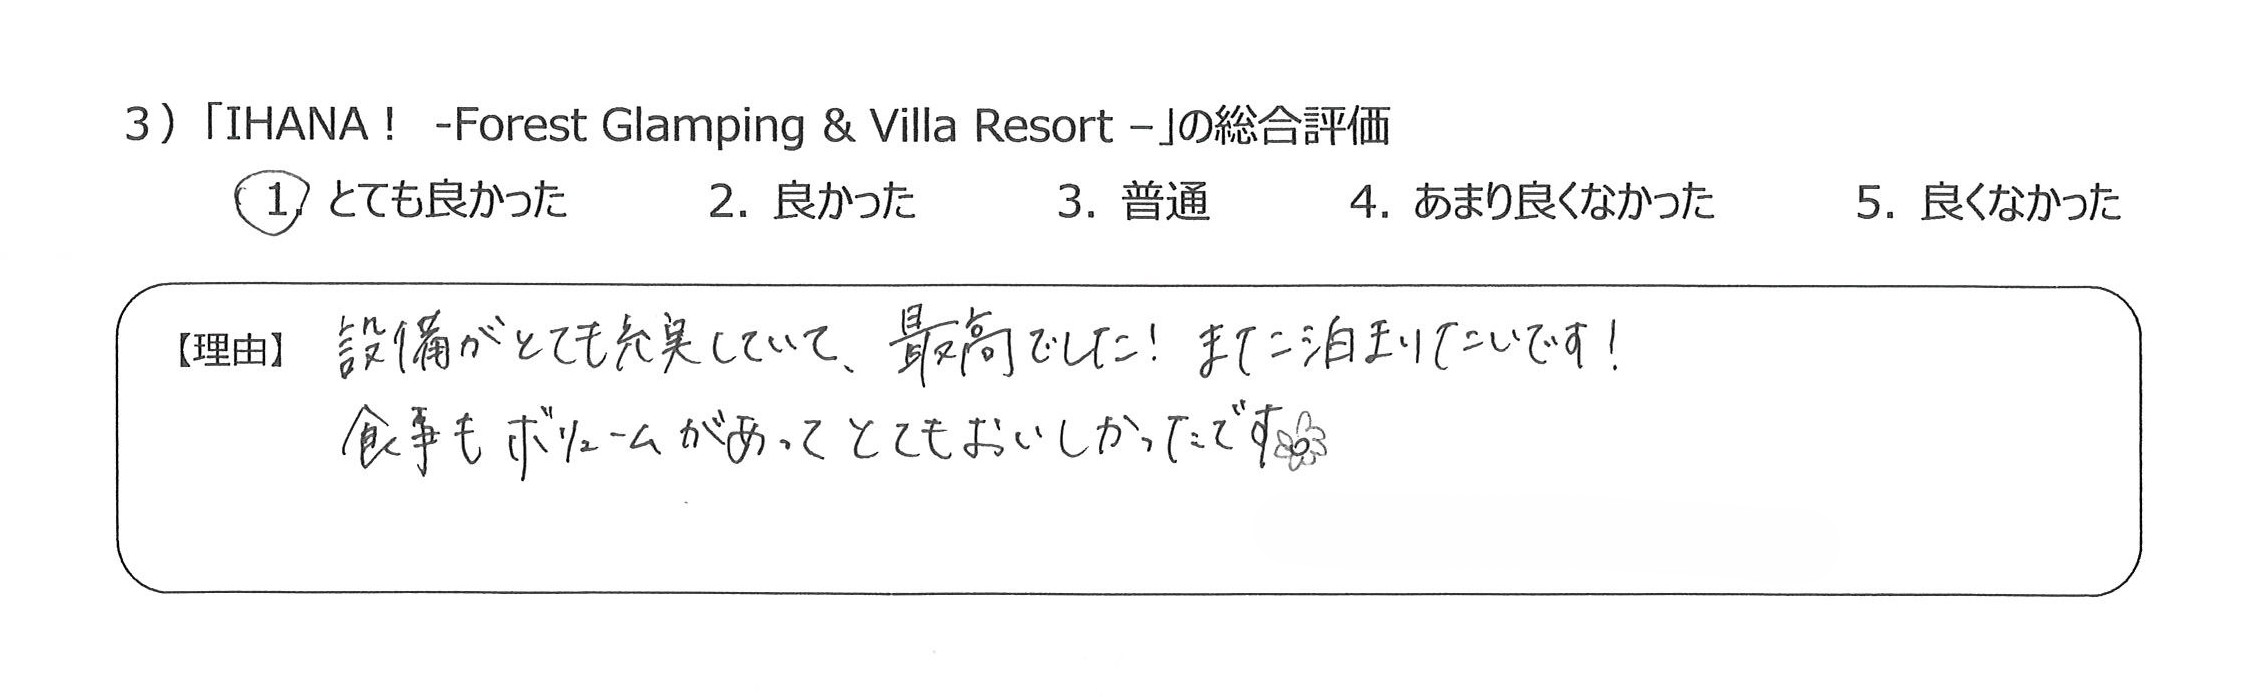 3)「IHANA！ -Forest Glamping & Villa Resort –」の総合評価
1. とても良かった 2. 良かった 3. 普通 4. あまり良くなかった 5. 良くなかった
【理由】 設備がとても充実していて、最高でした！また泊まりたいです！
食事もボリュームがあってとてもおいしかったです